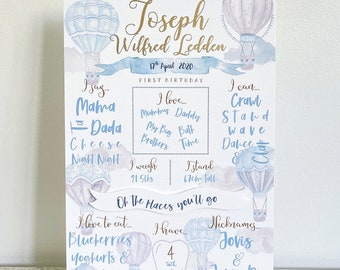 Joseph
Wilfred Ledden
17th April 2020
FIRST BIRTHDAY
I say...
Mama
Ta Dada
Cheese
Night Night
I love...
Mummy Daddy
My Big Brothers
Bath Time
I can...
Crawl
Stand
Wave
Dance
&
Clap
I weigh
21.5lbs
I stand
67cm tall
Oh the Places you'll go
I love to eat...
Blueberries
Yoghurts
&
I have
4
teeth
Nicknames...
Jovis
&